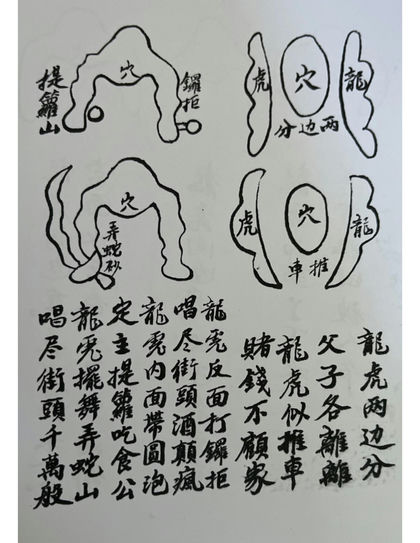 龍
穴
虎
两边分
鑼拒
穴
提籮山
龍
穴
虎
推車
穴
弄蛇砂
龍虎两边分
父子各離離
龍虎似推車
賭錢不顧家
龍虎反面打鑼拒
唱尽街頭酒顛瘋
龍虎内面帶圓泡
定主提籮吃食公
龍虎擺舞弄蛇山
唱尽街頭千萬般